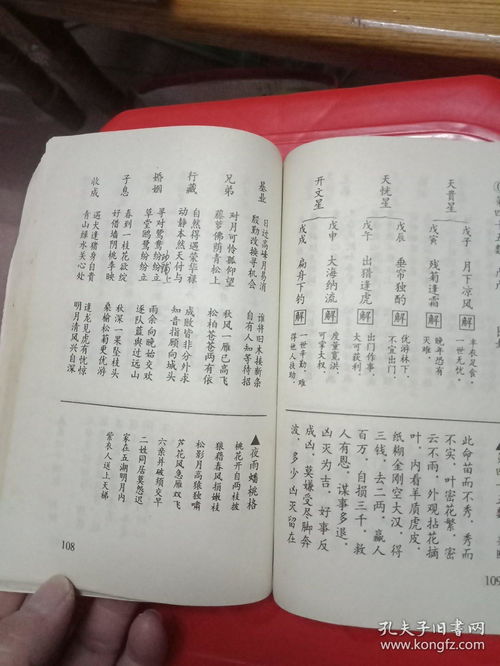 基业
日过高峰月易消 谁将旧木接新条
殷勤改接寻机会 自有人知等待招
兄弟
对月可怜孤仰望 秋风一雁已高飞
藤萝佛荫青松上 松柏苍苍两有依
行藏
自然得遇荣华禄 成败皆非分外求
动静本然天付与 知音指顾向城头
婚姻
寻对鸳鸯纷纷立 雨余向晚始交欢
草堂鸥鹭纷纷立 逐队蓝舆过远山
子息
春到一枝花欲绽 秋深一果坠枝头
好借墙阴桃李映 桑榆松菊更优游
收成
遇火逢猪身自贵 逢龙见虎有忧惊
青山绿水关心处 明月清风兴自深
▲夜雨蟠桃格
桃花开自两枝披
狼籍春风损一枝
松影月高猿独啸
芦花风急雁双飞
六亲井破须交早
二姓同居莫怨迟
家在五湖明月内
紫衣人送上天梯
108
天贵星
戊子 月下凉风 解 丰衣足食，一世无忧。
戊寅 残菊逢霜 解 晚年恐有灾难。
天恍星
戊辰 垂帘独酌 解 优游林下，不宜出门。
戊午 出猎逢虎 解 出门作事，大可获利。
开文星
戊申 大海纳流 解 度量宽洪，可掌大权。
戊戌 扁舟下钓 解 一世辛勤，难得世人扶助。
此命苗而不秀，秀而
不实，叶密花繁，密
云不雨，外观拈花摘
叶，内看羊质虎皮，
纸糊金刚空大汉，得
三钱，去二两，赢人
百万，自损三千，救
人有恩，谋事多退，
凶灭为吉，好事反
成凶，莫嫌受尽脚奔
波，多少凶灭留在
109
孔夫子旧书网
www.kongfz.com